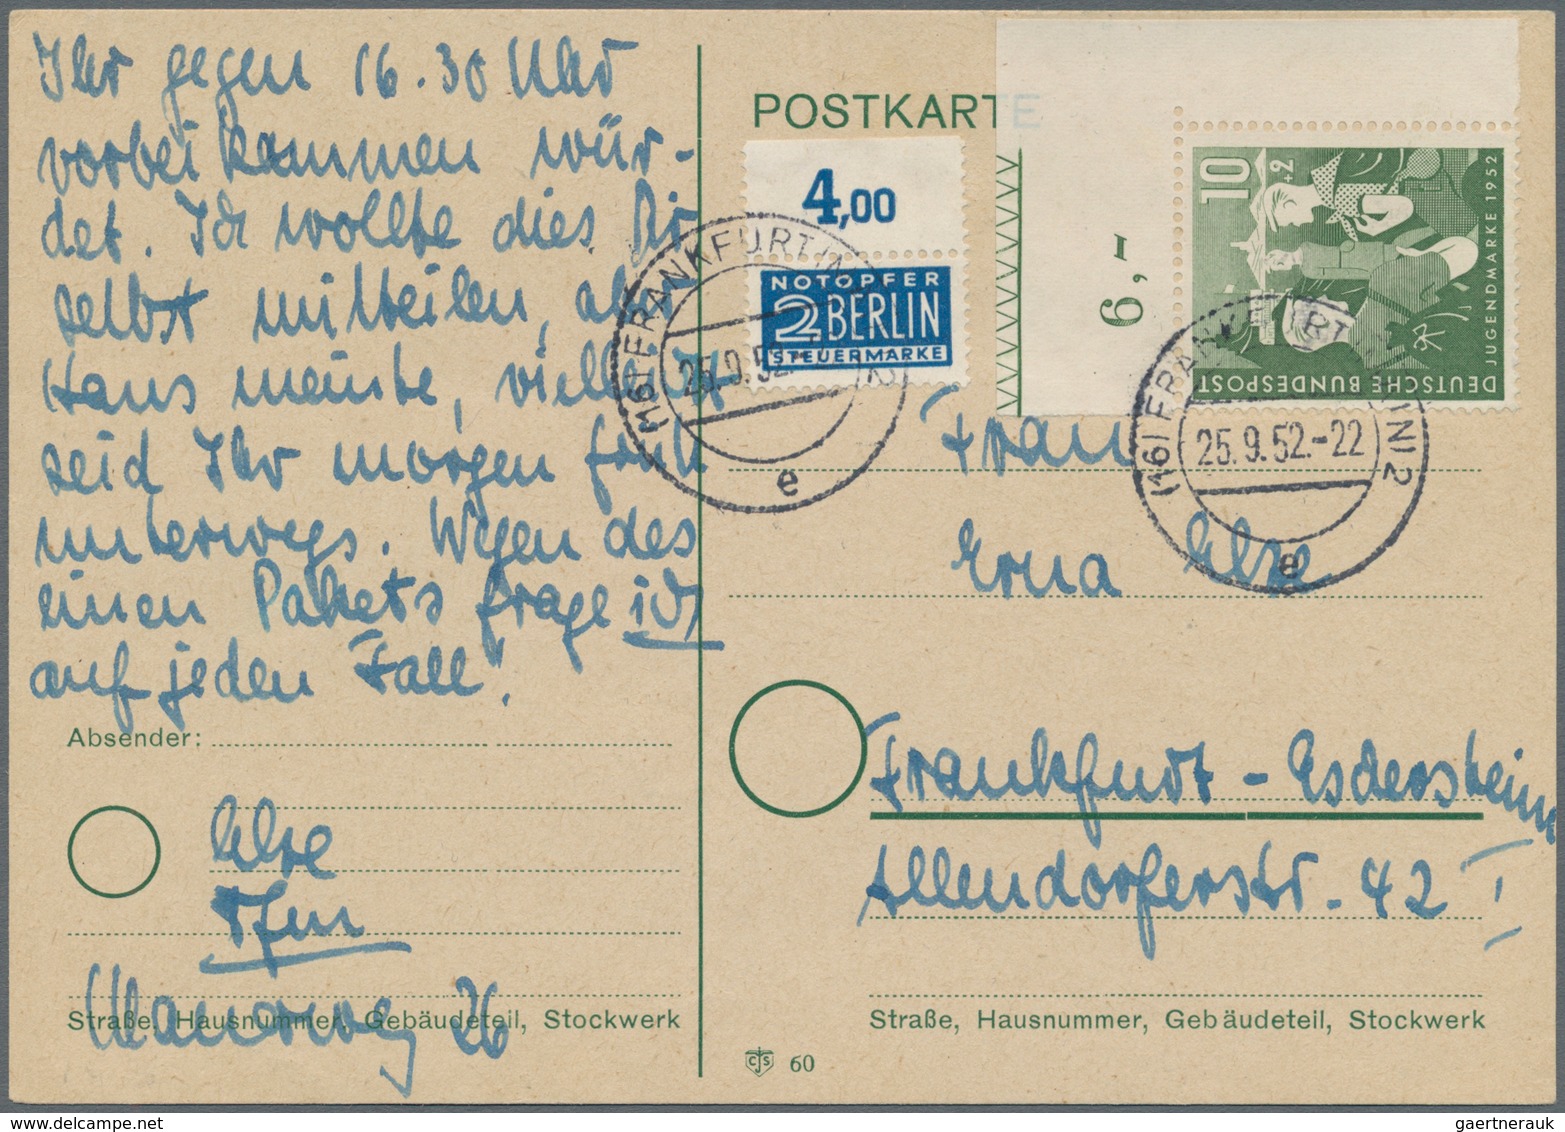 Ihr gegen 16.30 Uhr
vorbei kommen wür-
det. Ich wollte dies Dir
selbst mitteilen, aber
Hans meinte, vielleicht
seid Ihr morgen früh
unterwegs. Wegen des
einen Pakets frage ich
auf jeden Fall!
Absender:
Frfm
26
Straße, Hausnummer, Gebäudeteil, Stockwerk
POSTKARTE
4,00
NOTOPFER
2 BERLIN
STEUERMARKE
(16) FRANKFURT (MAIN) 2
25.9.52
e
6,-
10
+2
JUGENDMARKE 1952
DEUTSCHE BUNDESPOST
(16) FRANKFURT (MAIN) 2
25.9.52.-22
e
Frau
Erna
Frankfurt - Eschersheim
Allendorferstr. 42 I
Straße, Hausnummer, Gebäudeteil, Stockwerk
CJS 60
gaertnerauk